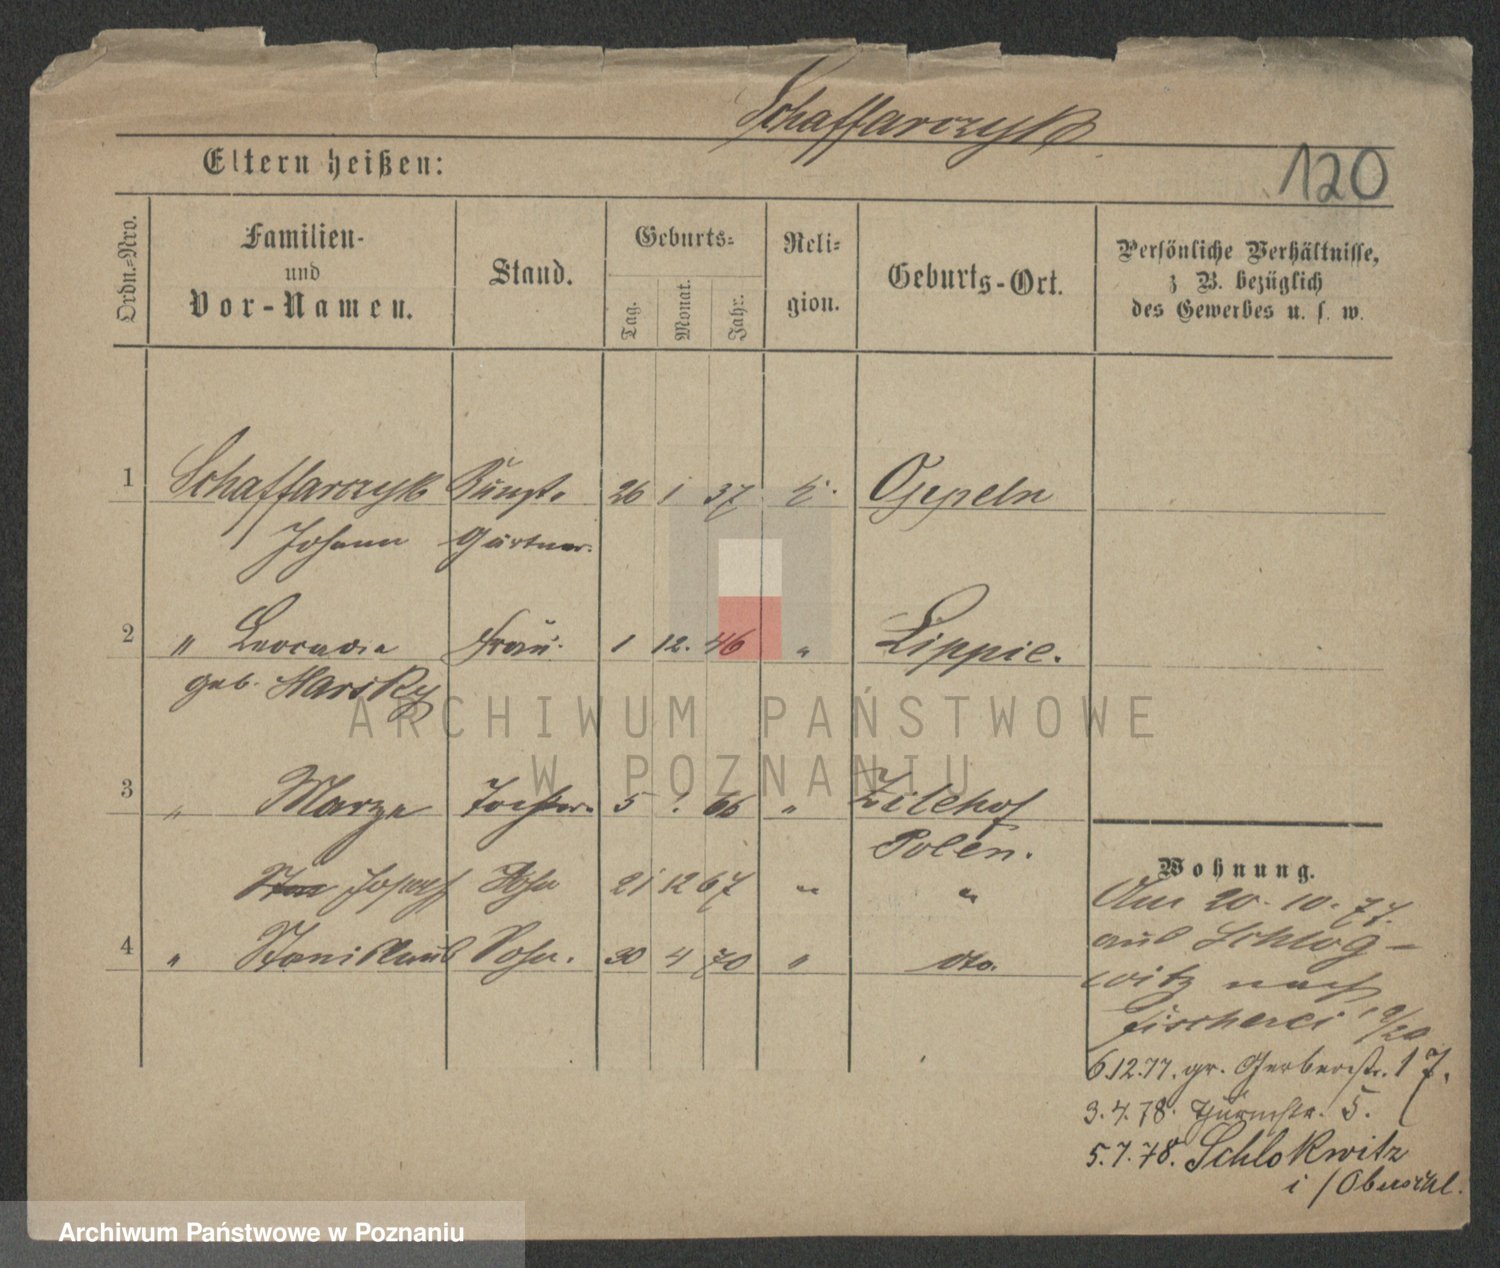 Schaffarczyk
120
Eltern heißen:
Ordn.-Nro.
Familien-
und
Vor-Namen.
Stand.
Geburts-
Tag.
Monat.
Jahr.
Reli-
gion.
Geburts-Ort.
Persönliche Verhältnisse,
z B. bezüglich
des Gewerbes u. s. w.
1 Schaffarczyk Kunst- 26 1 37 k. Oppeln
Johann Gärtner.
2 " Leocadia Frau. 1 12. 46 " Lippie.
geb. Narsky
ARCHIWUM PAŃSTWOWE
W POZNANIU
3 " Marya Tochter. 5 ? 66 " Zilehof
Polen.
Joseph Sohn 21 12 67 " "
4 " Stanislaus Sohn. 30 4 70 " dto.
Wohnung.
Am 20.10.77.
aus Schlog-
witz nach
Fischerei 19/20
6.12.77. gr. Gerberstr. 17.
3.4.78. Thurmstr. 5.
5.7.78. Schlokwitz
i/Oberschl.
Archiwum Państwowe w Poznaniu